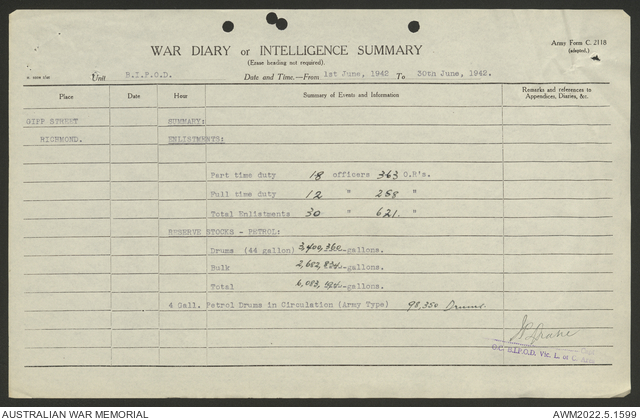 Army Form C. 2118
(adapted.)
WAR DIARY or INTELLIGENCE SUMMARY
(Erase heading not required).
Unit B.I.P.O.D. Date and Time.—From 1st June, 1942 To 30th June, 1942.
Place Date Hour Summary of Events and Information Remarks and references to Appendices, Diaries, &c.
GIPP STREET SUMMARY:
RICHMOND. ENLISTMENTS:
Part time duty 18 officers 363 O.R's.
Full time duty 12 " 258 "
Total Enlistments 30 " 621. "
RESERVE STOCKS - PETROL:
Drums (44 gallon) 3,400,360 gallons.
Bulk gallons.
Total gallons.
4 Gall. Petrol Drums in Circulation (Army Type) 98,350 Drums.
O.C. B.I.P.O.D. Vic. L. of C. Area
AUSTRALIAN WAR MEMORIAL AWM2022.5.1599